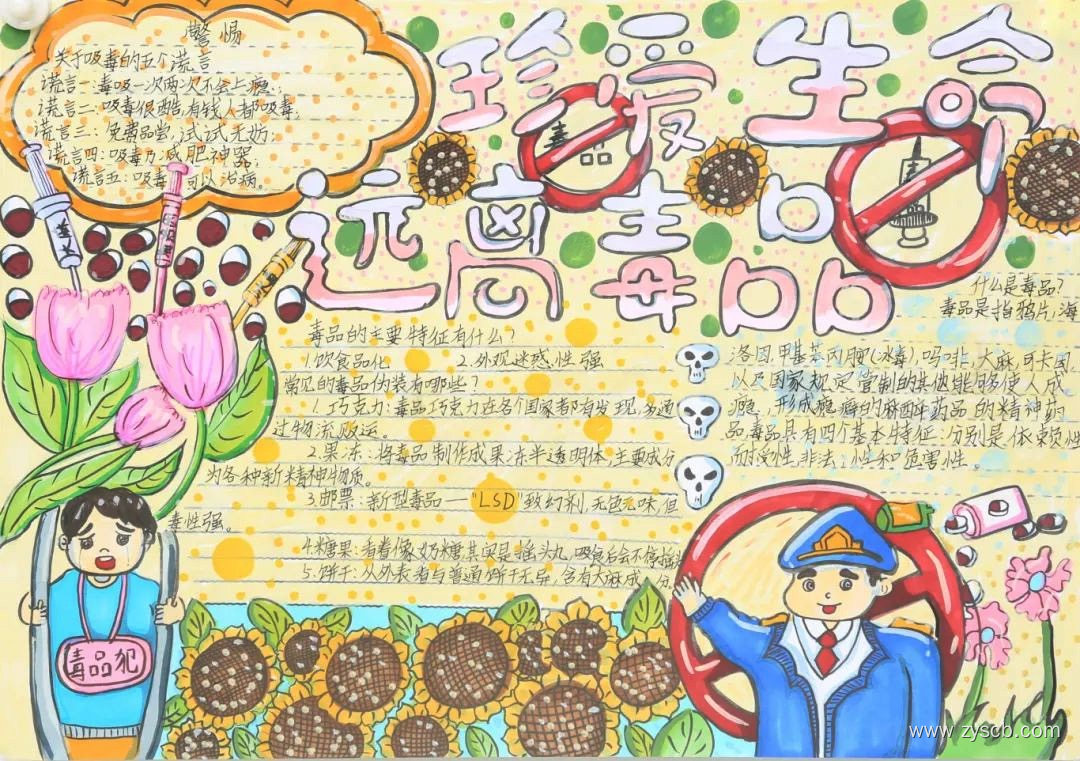 警惕
关于吸毒的五个谎言
谎言一:毒吸一次两次不会上瘾;
谎言二:吸毒很酷,有钱人都吸毒;
谎言三:免费品尝,试试无妨;
谎言四:吸毒乃减肥神器;
谎言五:吸毒可以治病。
珍爱生命
远离毒品
毒品
毒
毒品的主要特征有什么?
1.饮食品化 2.外观迷惑性强
常见的毒品伪装有哪些?
1.巧克力:毒品巧克力在各个国家都有发现,多通
过物流贩运。
2.果冻:将毒品制作成果冻半透明体,主要成分
为各种新精神物质。
3.邮票:新型毒品一“LSD”致幻剂,无色无味,但
毒性强。
4.糖果:看着像奶糖,其实是摇头丸,吸食后会不停摇
5.饼干:从外表看与普通饼干无异,含有大麻成分
什么是毒品?
毒品是指鸦片,海
洛因,甲基苯丙胺(冰毒),吗啡,大麻,可卡因,
以及国家规定管制的其他能够使人成
瘾,形成瘾癖的麻醉药品的精神药
品,毒品具有四个基本特征:分别是:依赖性
耐受性,非法性和危害性。
毒品犯
www.zyscb.com